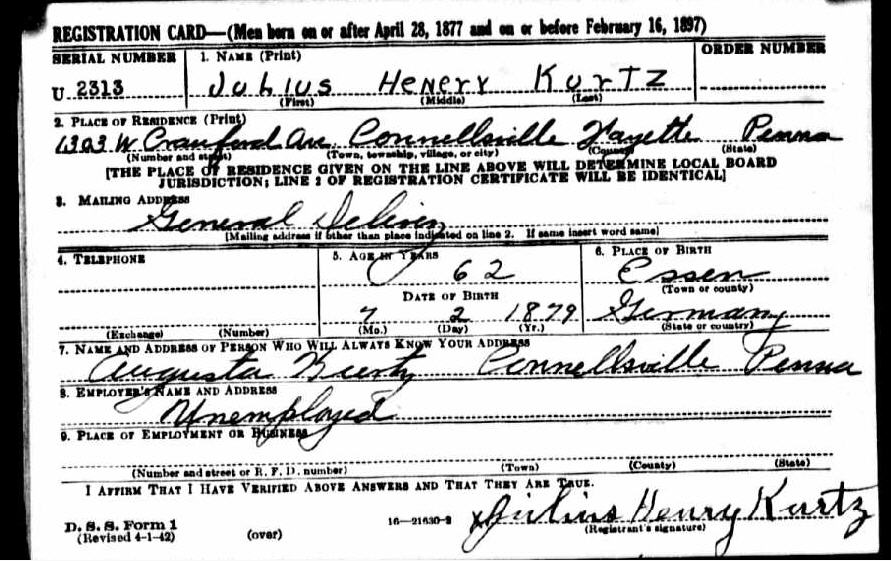 REGISTRATION CARD—(Men born on or after April 28, 1877 and on or before February 16, 1897)
SERIAL NUMBER 1. NAME (Print) ORDER NUMBER
U 2313 JULIUS HENERY KURTZ
(First) (Middle) (Last)
2. PLACE OF RESIDENCE (Print)
1303 W Crawford Av. Connellsville Fayette Penna
(Number and street) (Town, township, village, or city) (County) (State)
[THE PLACE OF RESIDENCE GIVEN ON THE LINE ABOVE WILL DETERMINE LOCAL BOARD
JURISDICTION; LINE 2 OF REGISTRATION CERTIFICATE WILL BE IDENTICAL]
3. MAILING ADDRESS
General Delivery
[Mailing address if other than place indicated on line 2. If same insert word same]
4. TELEPHONE 5. AGE IN YEARS 6. PLACE OF BIRTH
62 Essen
(Town or county)
DATE OF BIRTH
7 2 1879 Germany
(Exchange) (Number) (Mo.) (Day) (Yr.) (State or country)
7. NAME AND ADDRESS OF PERSON WHO WILL ALWAYS KNOW YOUR ADDRESS
Augusta Kurtz Connellsville Penna
8. EMPLOYER'S NAME AND ADDRESS
Unemployed
9. PLACE OF EMPLOYMENT OR BUSINESS
(Number and street or R. F. D. number) (Town) (County) (State)
I AFFIRM THAT I HAVE VERIFIED ABOVE ANSWERS AND THAT THEY ARE TRUE.
D. S. S. Form 1 16—21630-2 x Julius Henry Kurtz
(Revised 4-1-42) (over) (Registrant's signature)